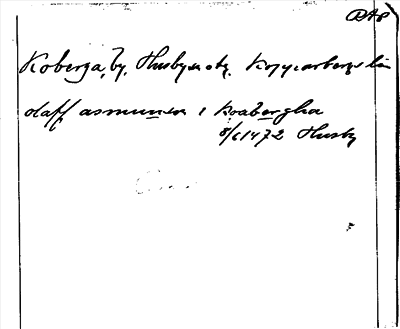 DAP
Koberga, by, Husby sn o tg. Kopparbergs län
olaff asmunsson i Koabergha
8/6 1472 Husby